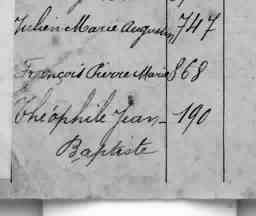 Julien Marie Augustin 747
François Pierre Marie 868
Théophile Jean 190
Baptiste